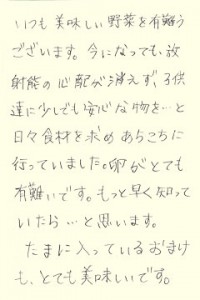 いつも美味しい野菜を有難う
ございます。今になっても、放
射能の心配が消えず、子供
達に少しでも安心な物を…と
日々食材を求めあちこちに
行っていました。卵がとても
有難いです。もっと早く知って
いたら…と思います。
たまに入っているおまけ
も、とても美味しいです。